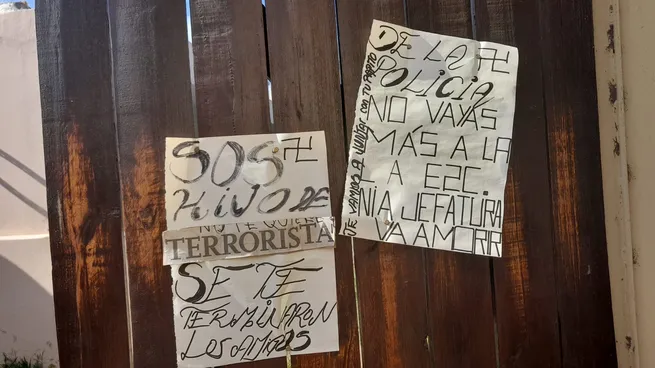 SOS 卐
HIJO DE
NO TE QUIERE
TERRORISTA
SE TE
TERMINARON
LOS AMIGOS
DE LA 卐
POLICIA
NO VAYAS
MÁS A LA
A ESC.
NIA JEFATURA
VA A MORIR
TE VAMOS A JUNTAR CON TU PAPITO